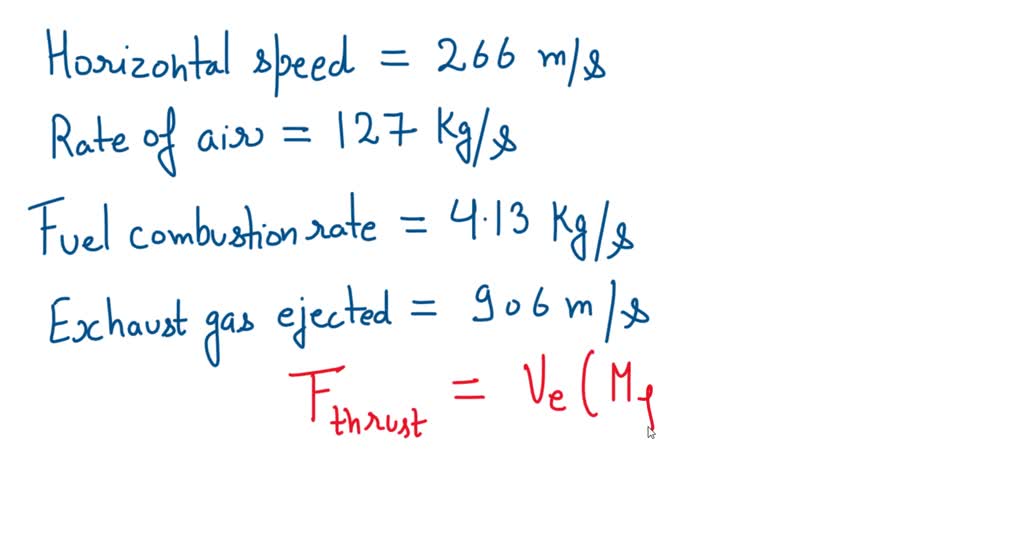 Horizontal speed = 266 m/s
Rate of air = 127 Kg/s
Fuel combustion rate = 4.13 Kg/s
Exhaust gas ejected = 906 m/s
F thrust = Ve (Mf